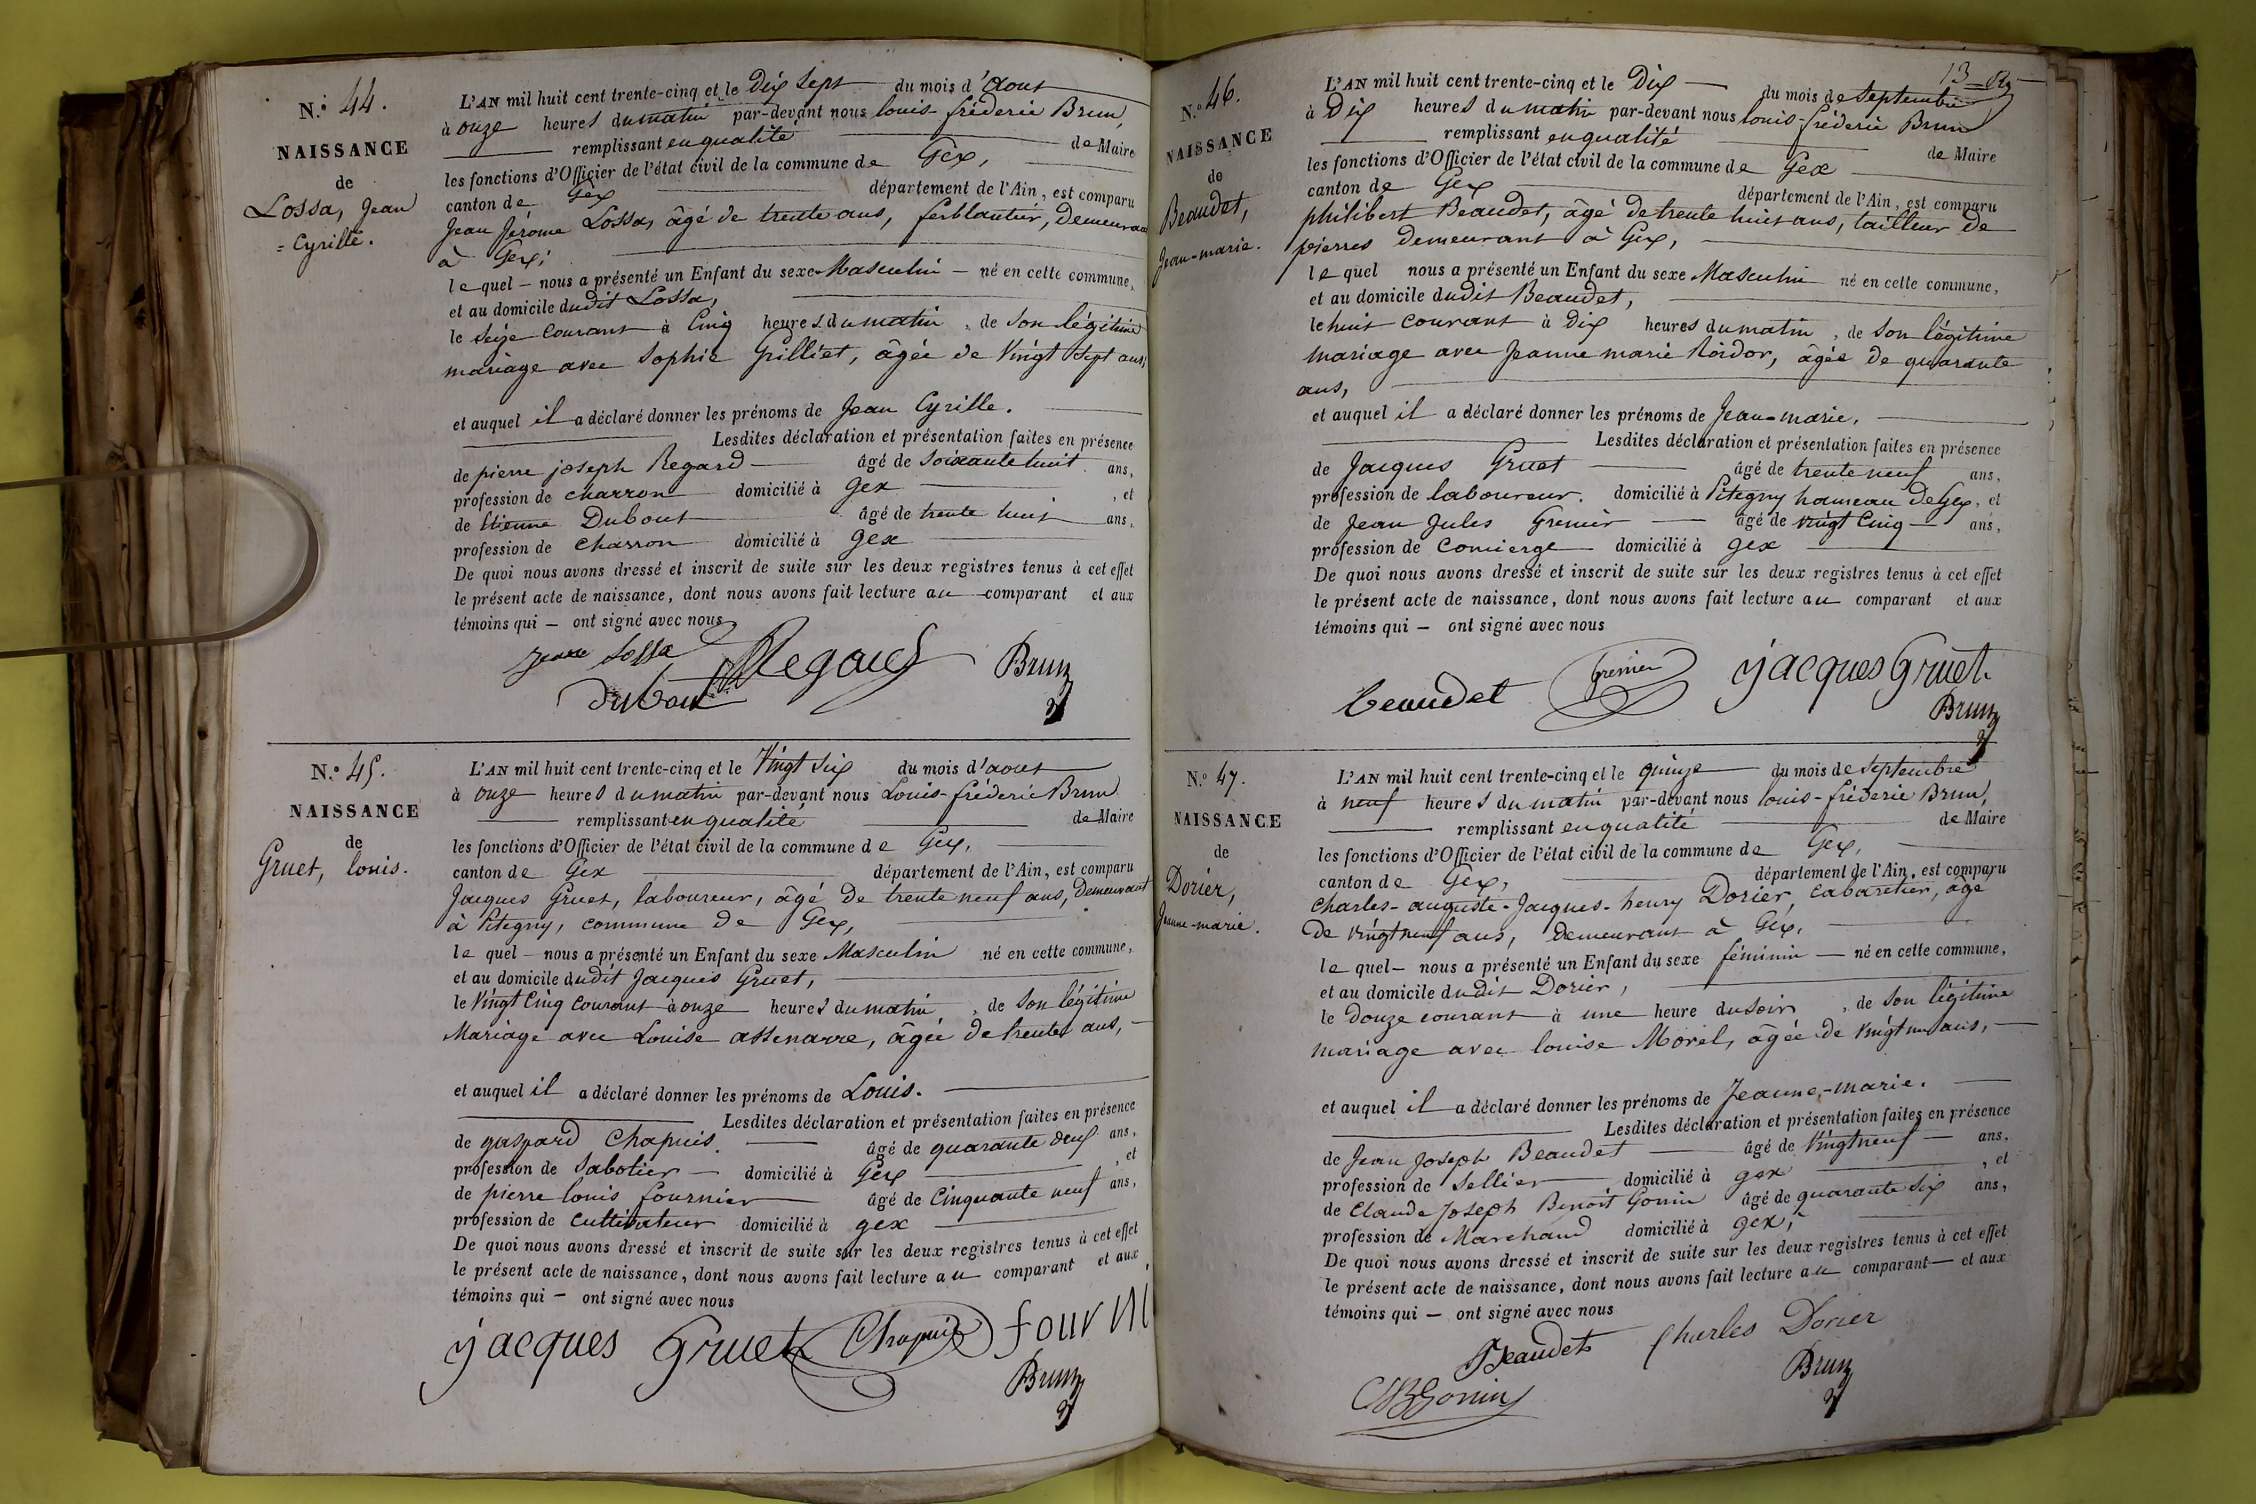 N.° 44.
NAISSANCE
de
Lossa, Jean
= Cyrille.
L'AN mil huit cent trente-cinq et le Dix Sept du mois d'Aout
à onze heures du matin par-devant nous louis-fréderic Brun,
remplissant en qualité de Maire
les fonctions d'Officier de l'état civil de la commune de Gex,
canton de Gex département de l'Ain, est comparu
Jean Jérome Lossa, âgé de trente ans, ferblantier, Demeurant
à Gex,
le quel – nous a présenté un Enfant du sexe Masculin – né en cette commune,
et au domicile dudit Lossa,
le Seize courant à Cinq heures du matin, de Son légitime
mariage avec Sophie Grilliet, âgée de Vingt Sept ans,
et auquel il a déclaré donner les prénoms de Jean Cyrille.
Lesdites déclaration et présentation faites en présence
de pierre joseph Regard âgé de Soixante huit ans,
profession de charron domicilié à Gex, et
de Etienne Dubout âgé de trente huit ans,
profession de Charron domicilié à Gex
De quoi nous avons dressé et inscrit de suite sur les deux registres tenus à cet effet
le présent acte de naissance, dont nous avons fait lecture au comparant et aux
témoins qui – ont signé avec nous
Lossa Regard Brun
Dubout
N.° 45.
NAISSANCE
de
Gruet, louis.
L'AN mil huit cent trente-cinq et le Vingt Six du mois d'aout
à onze heures du matin par-devant nous Louis-fréderic Brun
remplissant en qualité de Maire
les fonctions d'Officier de l'état civil de la commune de Gex,
canton de Gex département de l'Ain, est comparu
Jacques Gruet, laboureur, âgé de trente neuf ans, Demeurant
à Pitegny, commune de Gex,
le quel – nous a présenté un Enfant du sexe Masculin né en cette commune,
et au domicile dudit Jacques Gruet,
le Vingt Cinq courant à onze heures du matin, de Son légitime
Mariage avec Louise assenarre, âgée de trente ans, –
et auquel il a déclaré donner les prénoms de Louis.
Lesdites déclaration et présentation faites en présence
de gaspard Chapuis. âgé de quarante deux ans,
profession de Sabotier domicilié à Gex, et
de pierre louis fournier âgé de Cinquante neuf ans,
profession de Cultivateur domicilié à gex
De quoi nous avons dressé et inscrit de suite sur les deux registres tenus à cet effet
le présent acte de naissance, dont nous avons fait lecture au comparant et aux
témoins qui – ont signé avec nous
jacques Gruet Chapuis fourni
Brun
13
N.° 46.
NAISSANCE
de
Beaudet,
Jean-marie.
L'AN mil huit cent trente-cinq et le Dix du mois de Septembre
à Dix heures du matin par-devant nous louis-fréderic Brun
remplissant en qualité de Maire
les fonctions d'Officier de l'état civil de la commune de Gex
canton de Gex département de l'Ain, est comparu
philibert Beaudet, âgé de trente huit ans, tailleur de
pierres Demeurant à Gex,
le quel nous a présenté un Enfant du sexe Masculin né en cette commune,
et au domicile dudit Beaudet,
le huit courant à Dix heures du matin, de Son légitime
mariage avec Jeanne marie Roidor, âgée de quarante
ans,
et auquel il a déclaré donner les prénoms de Jean-marie,
Lesdites déclaration et présentation faites en présence
de Jacques Gruet âgé de trente neuf ans,
profession de laboureur. domicilié à Pitegny hameau de Gex, et
de Jean Jules Grenier âgé de vingt Cinq ans,
profession de Concierge domicilié à Gex
De quoi nous avons dressé et inscrit de suite sur les deux registres tenus à cet effet
le présent acte de naissance, dont nous avons fait lecture au comparant et aux
témoins qui – ont signé avec nous
beaudet Grenier jacques Gruet.
Brun
N.° 47.
NAISSANCE
de
Dorier,
Jeanne-marie.
L'AN mil huit cent trente-cinq et le quinze du mois de Septembre
à neuf heures du matin par-devant nous louis-fréderic Brun,
remplissant en qualité de Maire
les fonctions d'Officier de l'état civil de la commune de Gex,
canton de Gex, département de l'Ain, est comparu
Charles-auguste-Jacques-henry Dorier, Cabaretier, âgé
de vingt neuf ans, demeurant à Gex,
le quel – nous a présenté un Enfant du sexe féminin – né en cette commune,
et au domicile dudit Dorier,
le Douze courant à une heure du Soir, de Son légitime
mariage avec louise Morel, âgée de vingt un ans, –
et auquel il a déclaré donner les prénoms de Jeanne-marie.
Lesdites déclaration et présentation faites en présence
de Jean Joseph Beaudet âgé de Vingt neuf – ans,
profession de Sellier domicilié à gex, et
de Claude Joseph Benoit Gonin âgé de quarante Six ans,
profession de Marchand domicilié à gex,
De quoi nous avons dressé et inscrit de suite sur les deux registres tenus à cet effet
le présent acte de naissance, dont nous avons fait lecture au comparant – et aux
témoins qui – ont signé avec nous
Beaudet Charles Dorier
Brun
CJBGonin